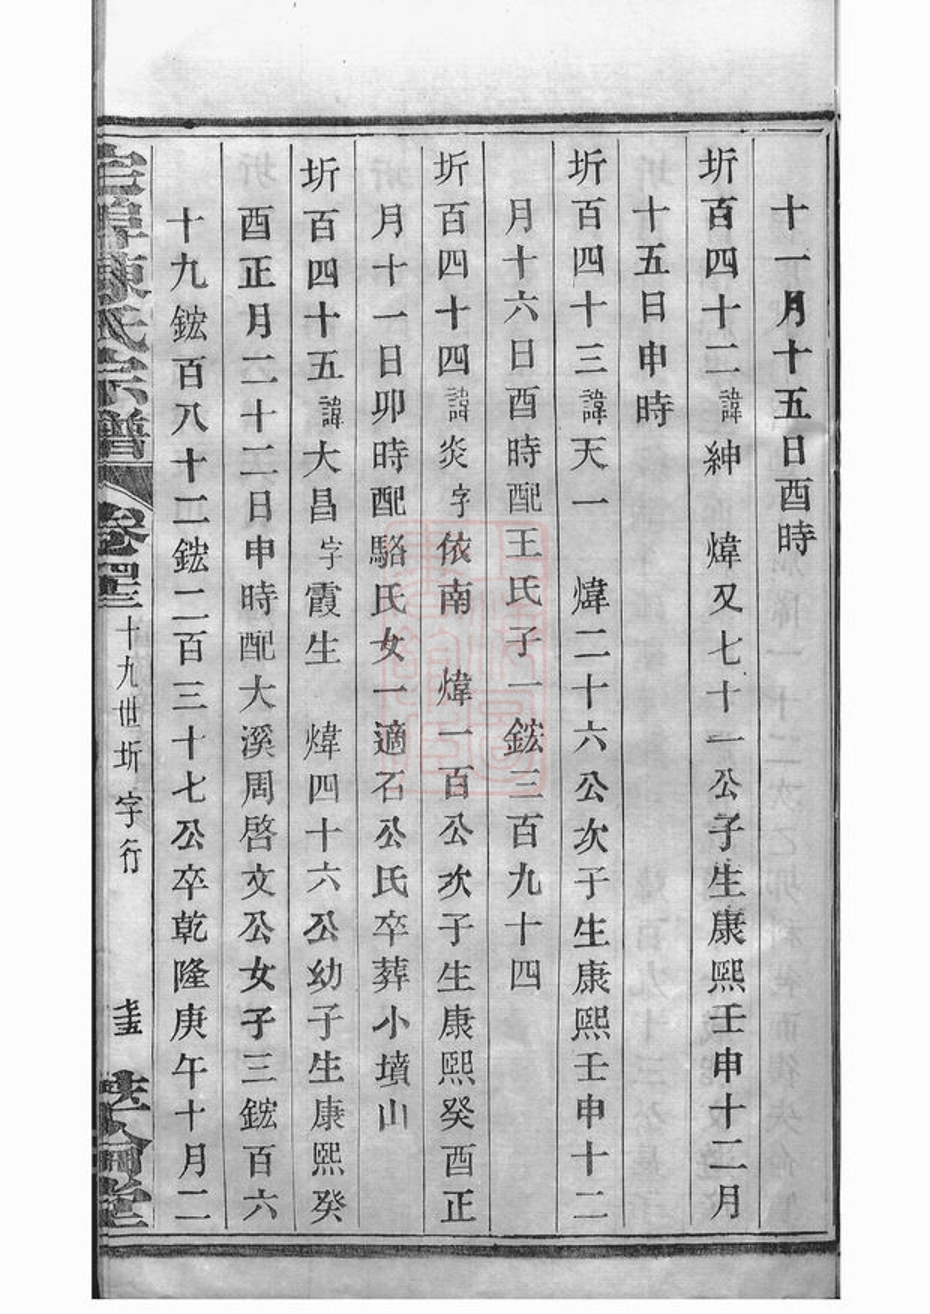 十一月十五日酉時
圻百四十二諱紳　煒又七十一公子生康熙壬申十二月
十五日申時
圻百四十三諱天一　煒二十六公次子生康熙壬申十二
月十六日酉時配王氏子一鋐三百九十四
圻百四十四諱炎字依南　煒一百公次子生康熙癸酉正
月十一日卯時配駱氏女一適石公氏卒葬小墳山
圻百四十五諱大昌字霞生　煒四十六公幼子生康熙癸
酉正月二十二日申時配大溪周啓文公女子三鋐百六
十九鋐百八十二鋐二百三十七公卒乾隆庚午十月二
陳氏宗譜
十九世圻字行